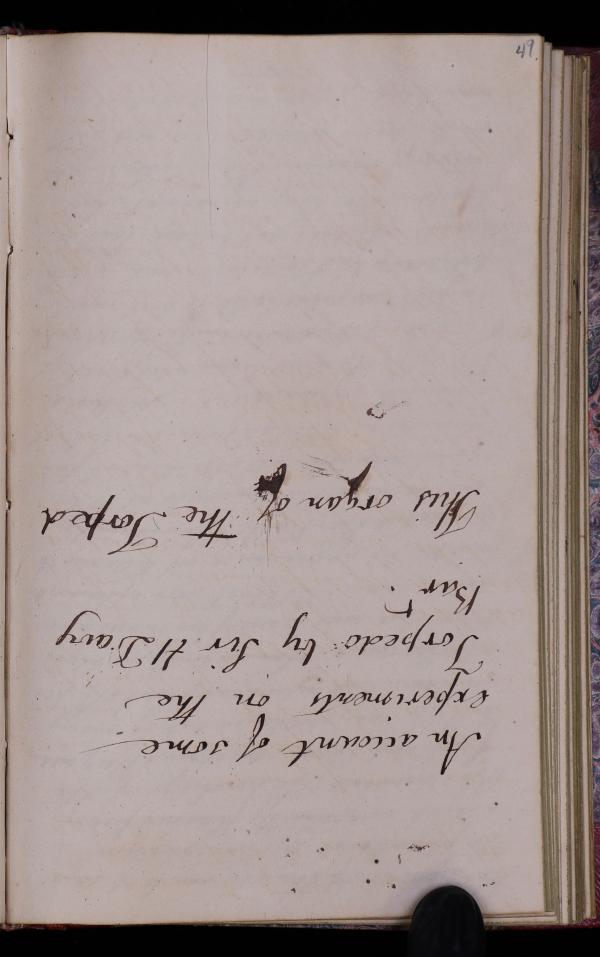 49
An account of some
experiments on the
Torpedo by Sir H Davy
Bart.
This organ of the Torped